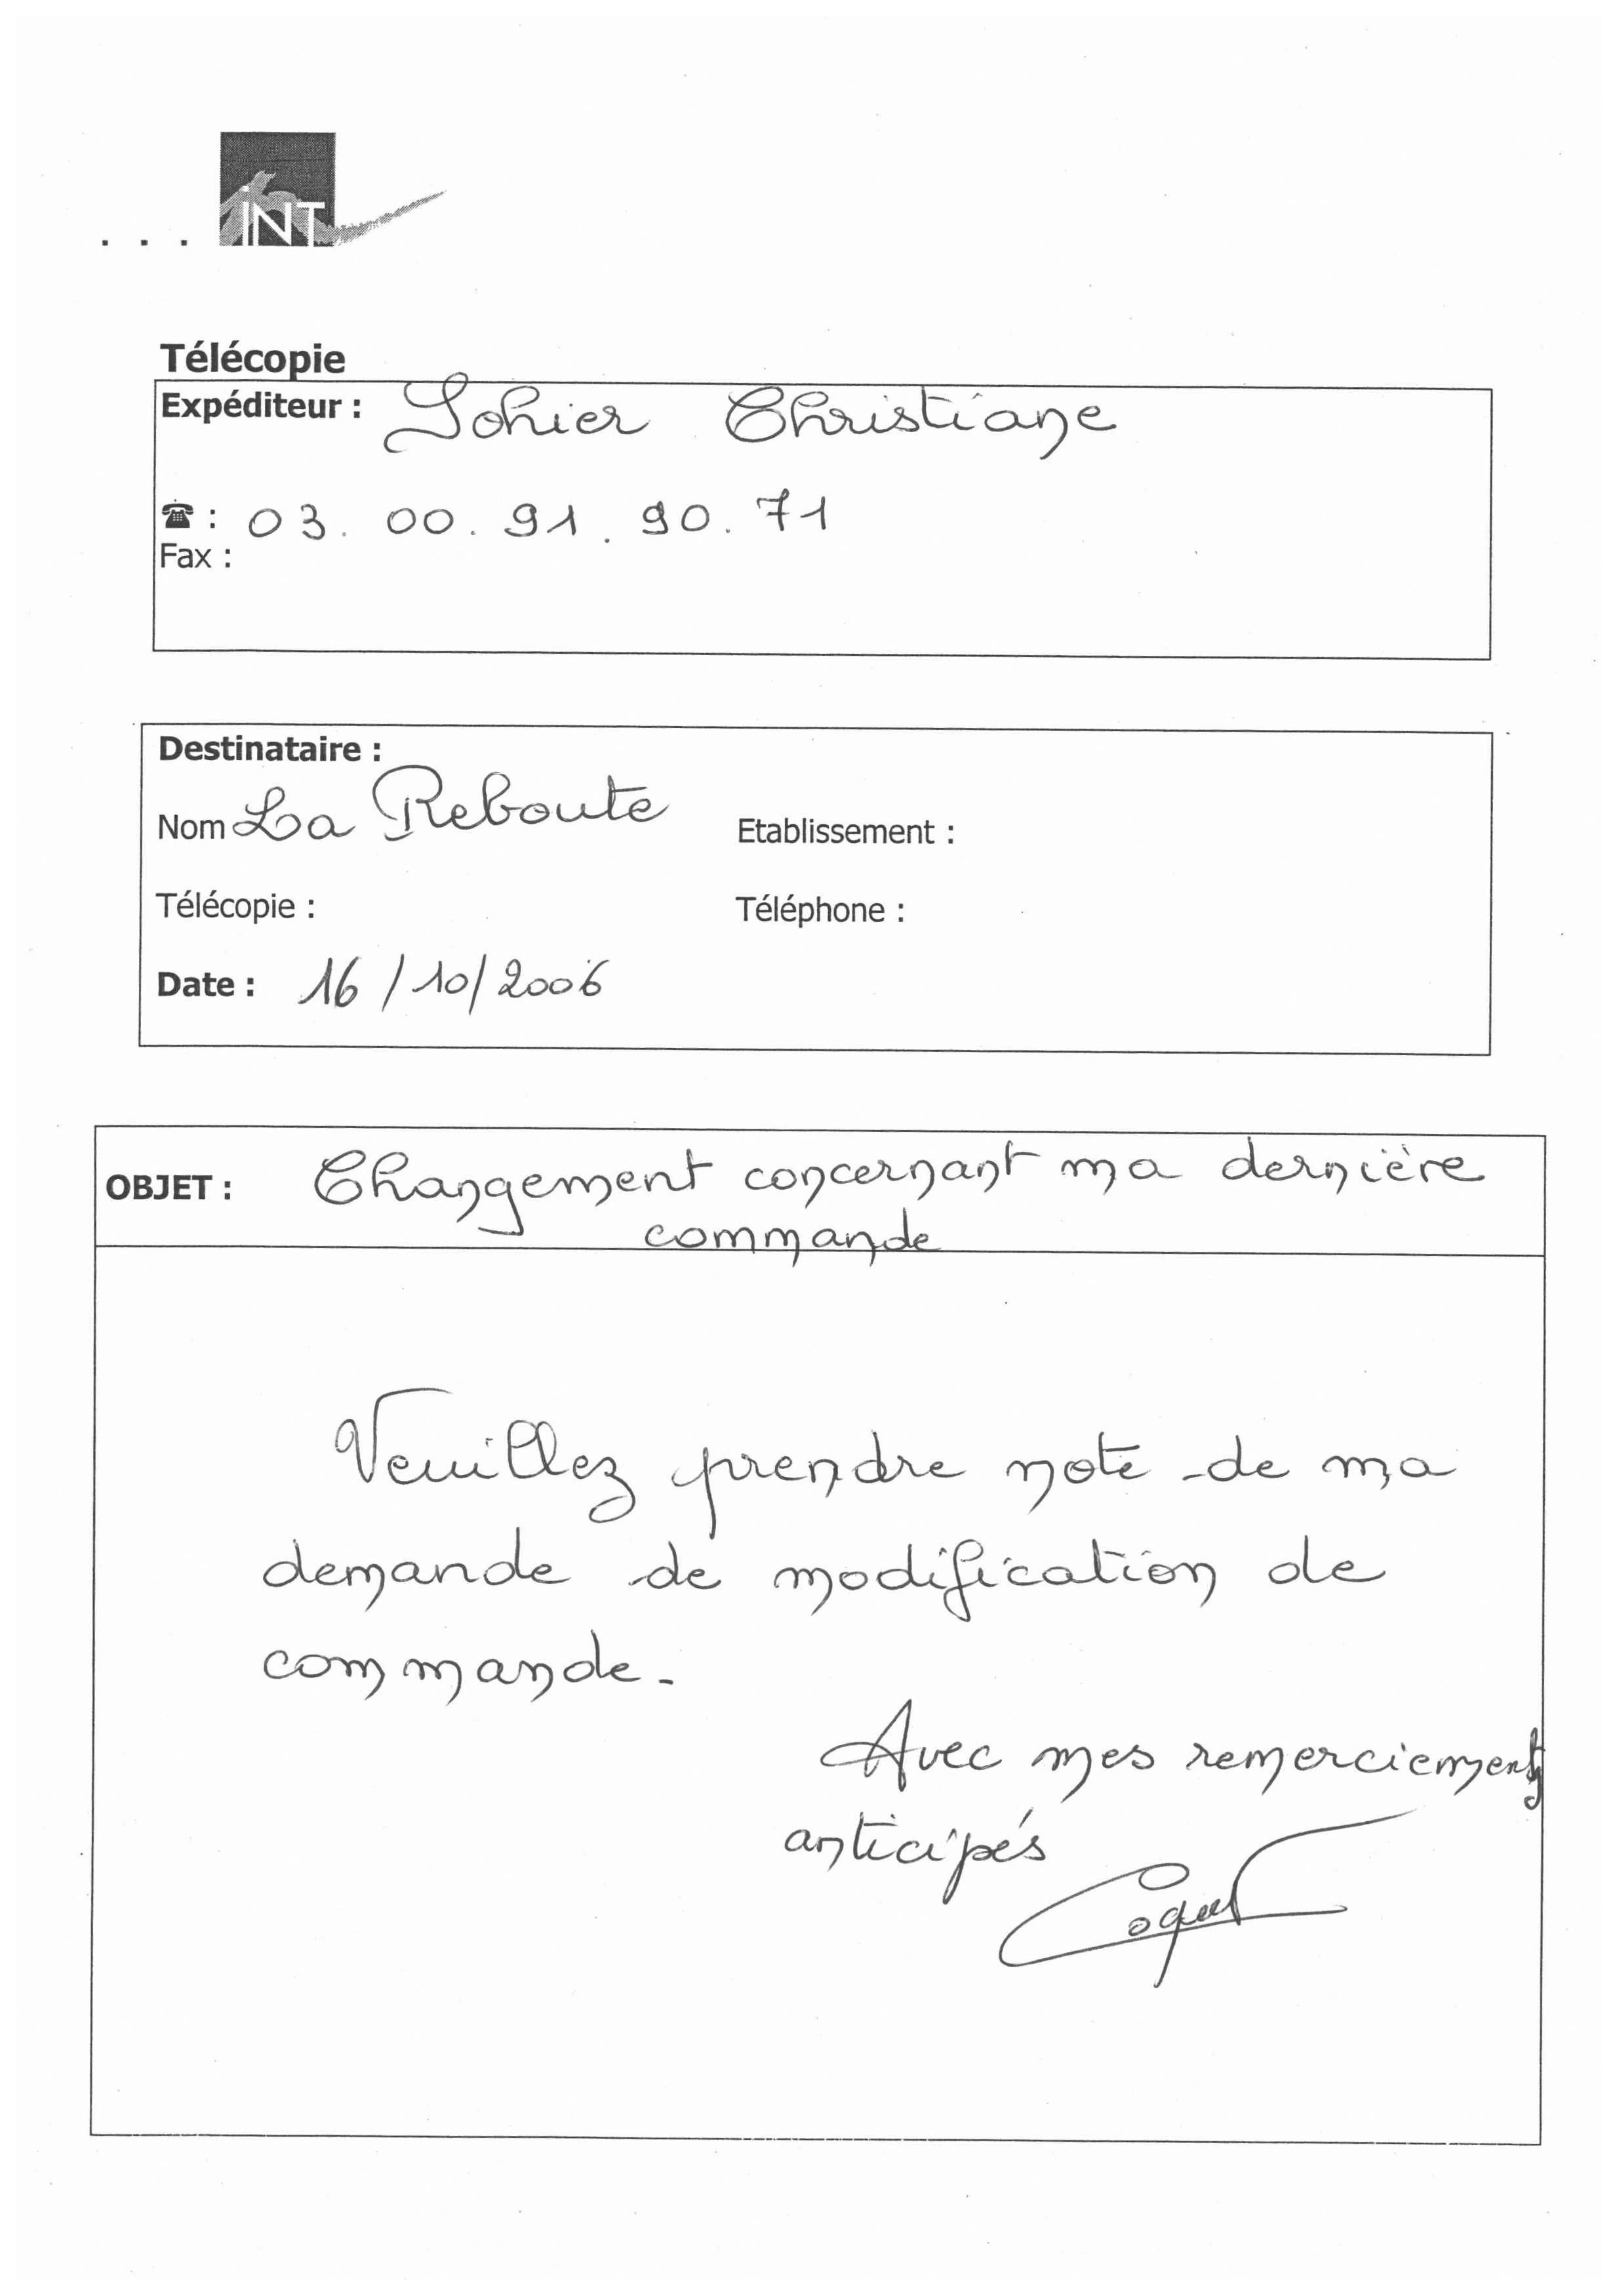 ... INT
Télécopie
Expéditeur : Lohier Christiane
☎ : 03. 00. 91. 90. 71
Fax :
Destinataire :
Nom La Reboute Etablissement :
Télécopie : Téléphone :
Date : 16/10/2006
OBJET : Changement concernant ma dernière
commande
Veuillez prendre note de ma
demande de modification de
commande.
Avec mes remerciements
anticipés